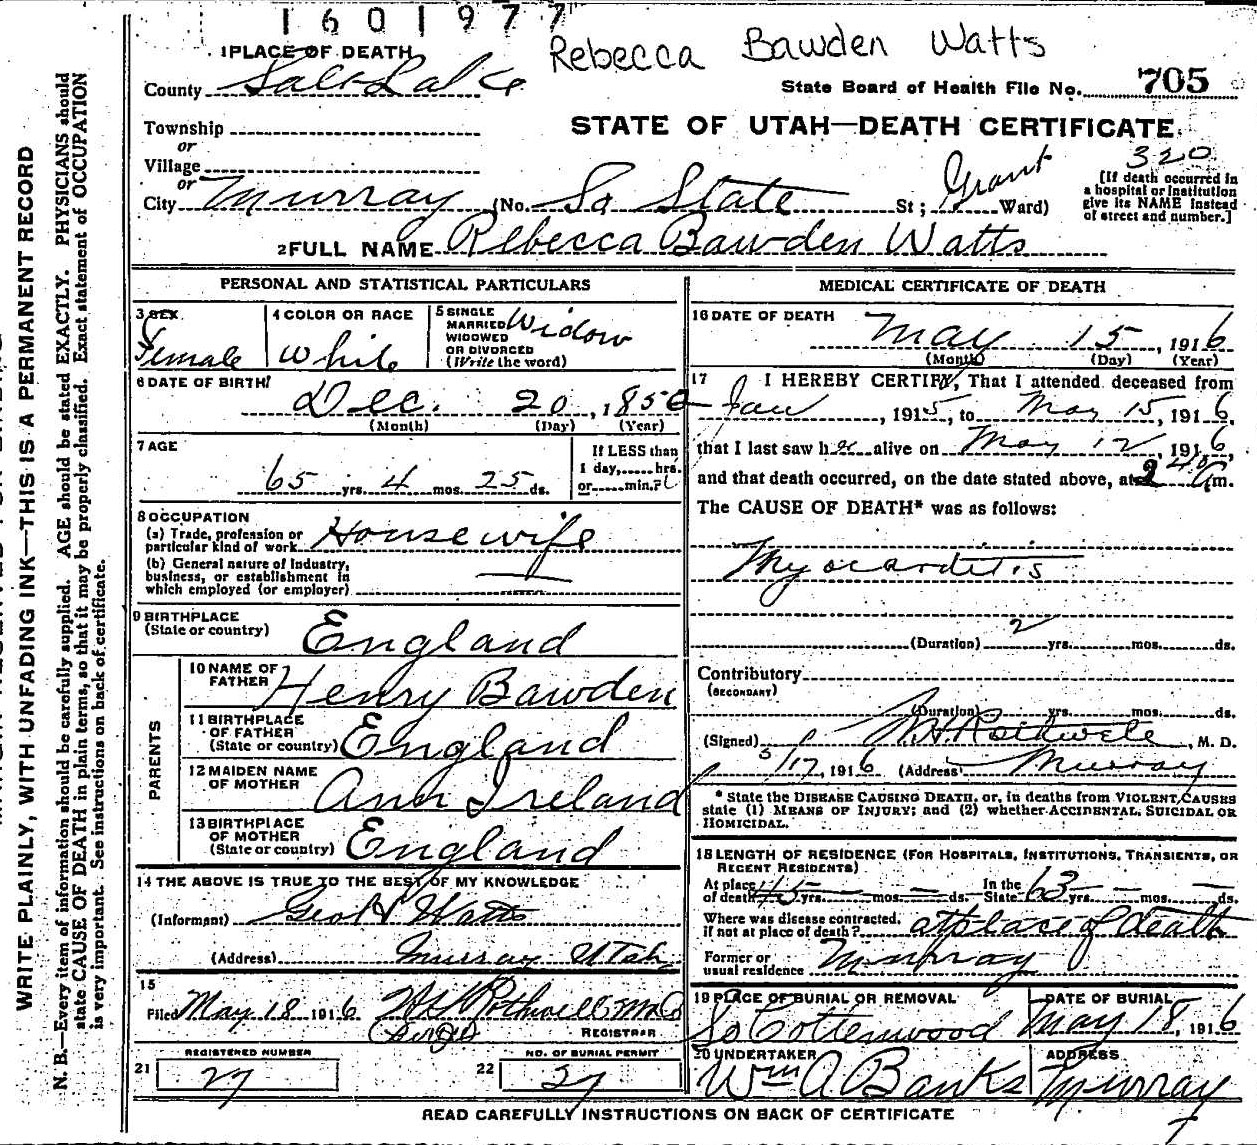 1601977
Rebecca Bawden Watts
1 PLACE OF DEATH
County Salt Lake
State Board of Health File No. 705
STATE OF UTAH—DEATH CERTIFICATE.
Township
or
Village
or
City Murray (No. So State St; Grant Ward)
320
[If death occurred in
a hospital or institution
give its NAME instead
of street and number.]
2 FULL NAME Rebecca Bawden Watts
PERSONAL AND STATISTICAL PARTICULARS
3 SEX
Female
4 COLOR OR RACE
White
5 SINGLE
MARRIED
WIDOWED
OR DIVORCED
(Write the word)
Widow
6 DATE OF BIRTH
Dec. 20, 1850
(Month) (Day) (Year)
7 AGE
65 yrs. 4 mos. 25 ds.
If LESS than
1 day,......hrs.
or......min.?
8 OCCUPATION
(a) Trade, profession or
particular kind of work Housewife
(b) General nature of Industry,
business, or establishment in
which employed (or employer)
9 BIRTHPLACE
(State or country) England
PARENTS
10 NAME OF
FATHER Henry Bawden
11 BIRTHPLACE
OF FATHER
(State or country) England
12 MAIDEN NAME
OF MOTHER Ann Ireland
13 BIRTHPLACE
OF MOTHER
(State or country) England
14 THE ABOVE IS TRUE TO THE BEST OF MY KNOWLEDGE
(Informant) Geo H Watts
(Address) Murray Utah
15
Filed May 18 1916 Rothwell MD
REGISTRAR
REGISTERED NUMBER
21 27
NO. OF BURIAL PERMIT
22 27
MEDICAL CERTIFICATE OF DEATH
16 DATE OF DEATH
May 15, 1916
(Month) (Day) (Year)
17 I HEREBY CERTIFY, That I attended deceased from
Jan, 1915, to May 15, 1916,
that I last saw her alive on May 12, 1916,
and that death occurred, on the date stated above, at 2 40 A m.
The CAUSE OF DEATH* was as follows:
Myocarditis
(Duration) 2 yrs. mos. ds.
Contributory
(SECONDARY)
(Duration) yrs. mos. ds.
(Signed) Rothwell, M. D.
5/17, 1916 (Address) Murray
* State the DISEASE CAUSING DEATH, or, in deaths from VIOLENT CAUSES
state (1) MEANS OF INJURY; and (2) whether ACCIDENTAL, SUICIDAL OR
HOMICIDAL.
18 LENGTH OF RESIDENCE (FOR HOSPITALS, INSTITUTIONS, TRANSIENTS, OR
RECENT RESIDENTS)
At place
of death 45 yrs. — mos. — ds. In the
State 63 yrs. — mos. — ds.
Where was disease contracted,
if not at place of death? at place of death
Former or
usual residence Murray
19 PLACE OF BURIAL OR REMOVAL
So Cottonwood
DATE OF BURIAL
May 18, 1916
20 UNDERTAKER
Wm A Banks
ADDRESS
Murray
READ CAREFULLY INSTRUCTIONS ON BACK OF CERTIFICATE
WRITE PLAINLY, WITH UNFADING INK—THIS IS A PERMANENT RECORD
N. B.—Every item of information should be carefully supplied. AGE should be stated EXACTLY. PHYSICIANS should
state CAUSE OF DEATH in plain terms, so that it may be properly classified. Exact statement of OCCUPATION
is very important. See instructions on back of certificate.